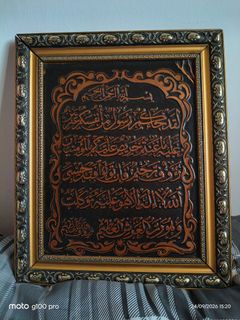 بسم الله الرحمن الرحيم
لقد جاءكم رسول من أنفسكم عزيز
عليه ما عنتم حريص عليكم بالمؤمنين
رءوف رحيم فإن تولوا فقل حسبي
الله لا إله إلا هو عليه توكلت
وهو رب العرش العظيم
moto g100 pro
24/09/2026 15:20